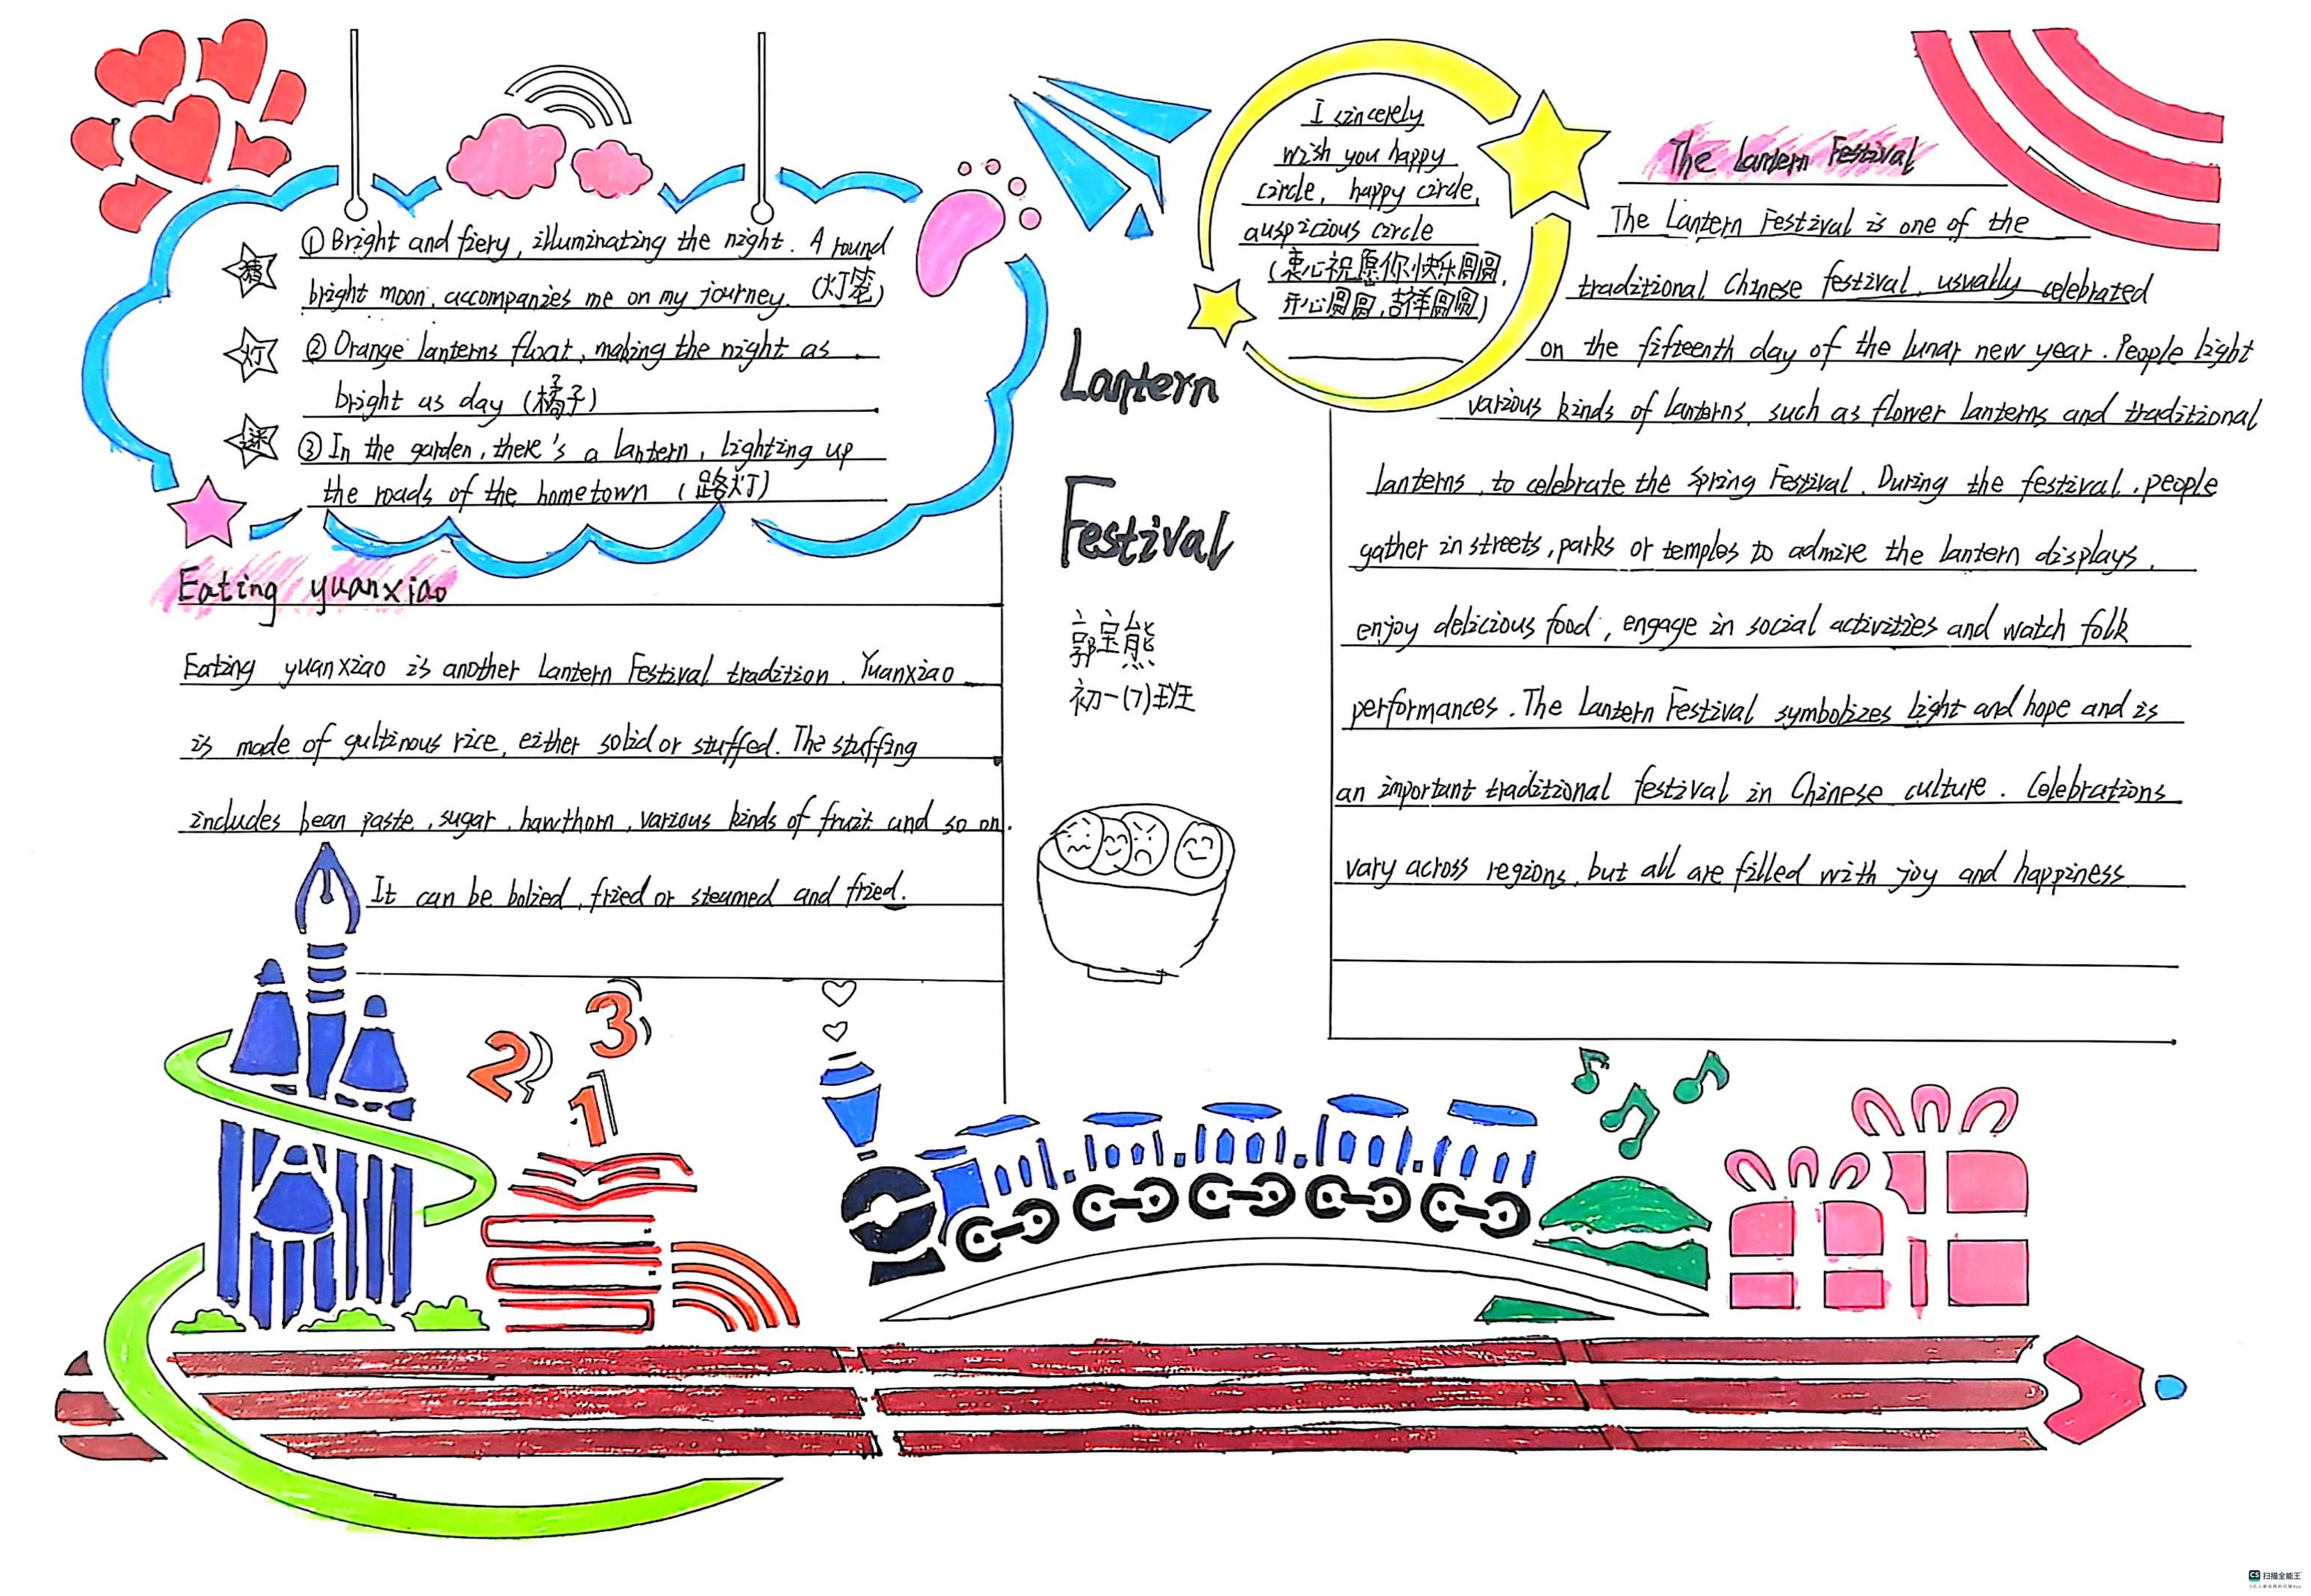 猜
灯
谜
①Bright and fiery, illuminating the night. A round
bright moon, accompanies me on my journey. (灯笼)
②Orange lanterns float, making the night as
bright as day (橘子)
③In the garden, there's a lantern, lighting up
the roads of the hometown (路灯)
Eating yuanxiao
Eating yuanxiao is another Lantern Festival tradition. Yuanxiao
is made of gultinous rice, either solid or stuffed. The stuffing
includes bean paste, sugar, hawthorn, various kinds of fruit and so on.
It can be bolied, fried or steamed and fried.
2 3
1
Lantern
Festival
郭宝熊
初一(7)班
I sincerely
wish you happy
circle, happy circle,
auspicious circle
(衷心祝愿你快乐圆圆,
开心圆圆,吉祥圆圆)
The Lantern Festival
The Lantern Festival is one of the
traditional Chinese festival, usually celebrated
on the fifteenth day of the lunar new year. People light
various kinds of lanterns, such as flower lanterns and traditional
lanterns, to celebrate the Spring Festival. During the festival, people
gather in streets, parks or temples to admire the lantern displays,
enjoy delicious food, engage in social activities and watch folk
performances. The Lantern Festival symbolizes light and hope and is
an important traditional festival in Chinese culture. Celebrations
vary across regions, but all are filled with joy and happiness
CS 扫描全能王